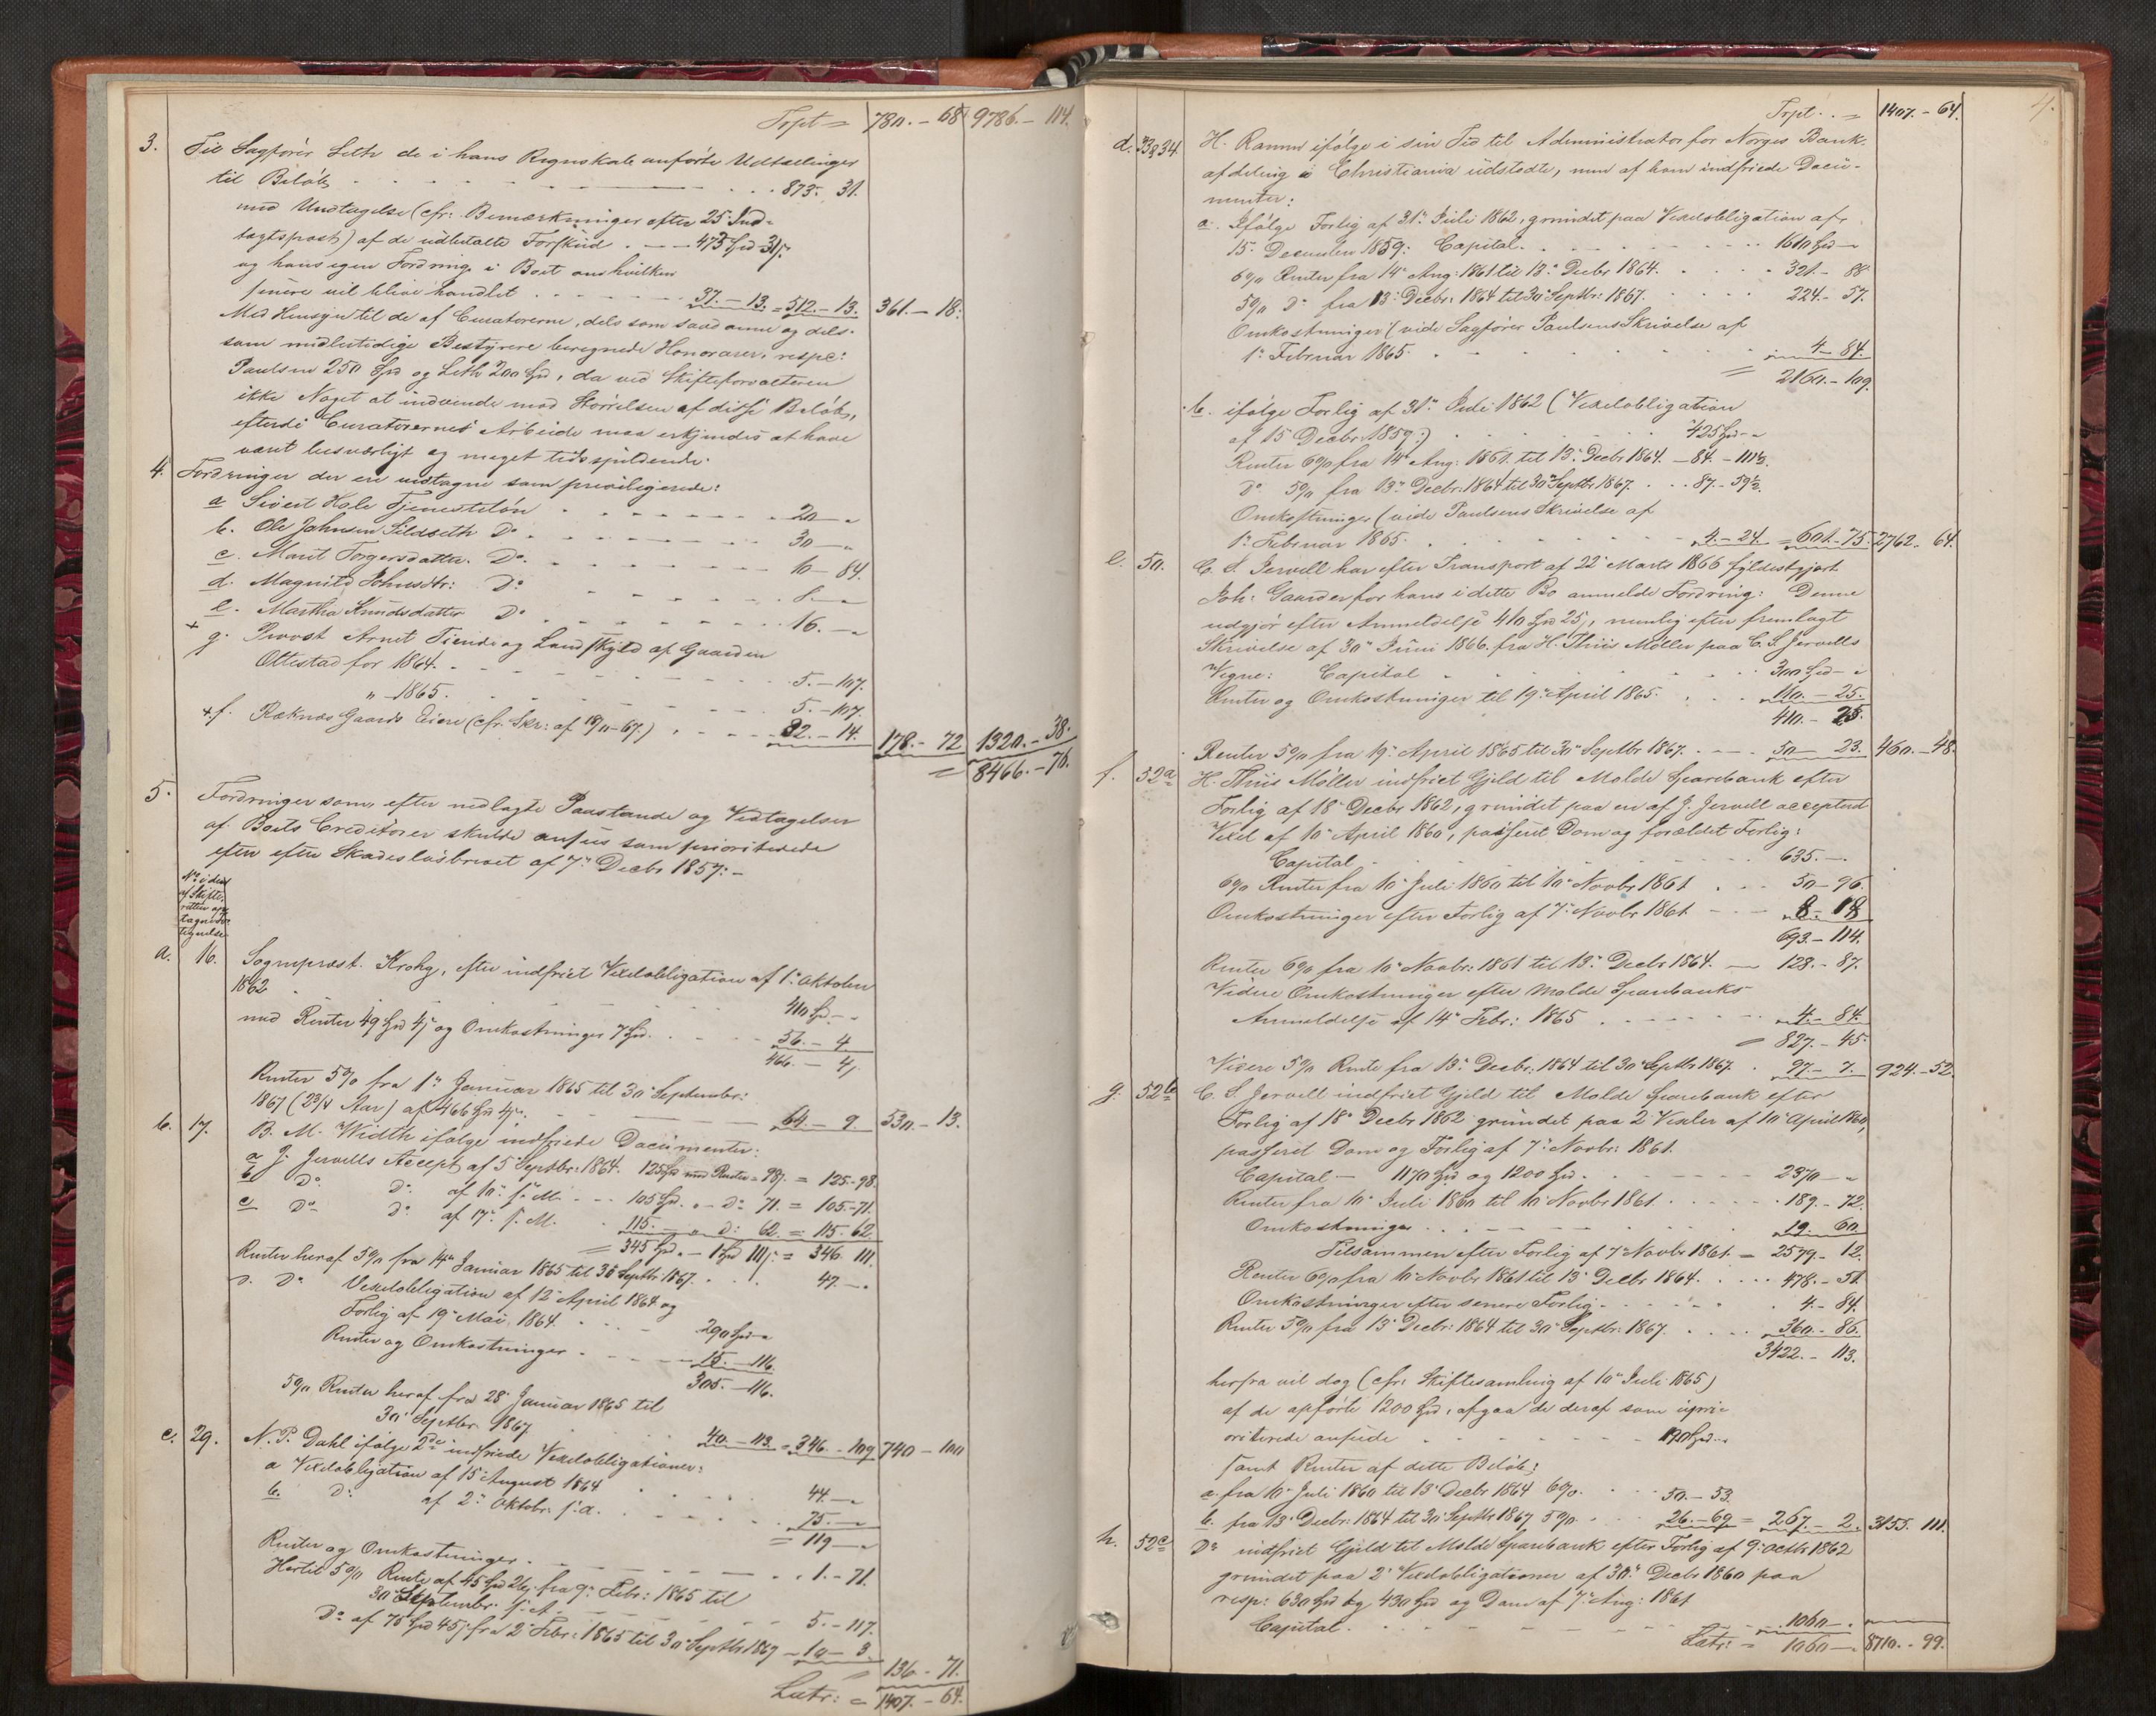 Trpt = 780. - 68 9786. - 114.
3. Til Sagfører Leth de i hans Regnskab anførte Udtællinger
til Beløb . . . 873. 31.
med Undtagelse (cfr: Bemærkninger efter 25 Ind-
tægtspost) af de udbetalte Forskud . - - 475 Spd 31/.
og hans egen Fordring i Boet om hvilken
senere vil blive handlet . . . 37. - 13. = 512. - 13. 361. - 18.
Med Hensyn til de af Curatorerne, dels som saadanne og dels
som midlertidige Bestyrere beregnede Honorarer, respc:
Paulsen 250 Spd og Leth 200 Spd, da ved Skifteforvalteren
ikke Noget at indvende mod Størrelsen af disse Beløb,
efterdi Curatorernes Arbeide maa erkjendes at have
været besværligt og meget tidsspildende.
4. Fordringer der ere vedtagne som privilegerede:
a Sivert Hole Tjenesteløn . . . 20 - "
b. Ole Johnsen Sildseth Do . . . 30 - "
c. Marit Torgersdatter. Do. . . . 10 - 84.
d. Magnild Johnsdtr: Do . . . 8 - "
e. Martha Knudsdatter Do . . . 16. - "
+ g. Provst Arnet Tiende og Landskyld af Gaarden
Ottestad for 1864. . . . 5. - 107.
" - 1865. . . . 5. - 107.
+ f. Ræknæs Gaards Eiere (cfr. Skr: af 18/11-67.) . . . 82. - 14. 178. - 72 1320. - 38.
= 8466. - 76.
5. Fordringer som, efter nedlagte Paastande og Vedtagelser
af Boets Creditorer skulde ansees som prioriterede
efter efter Skadesløsbrevet af 7de Decbr 1857: -
No i den
af Skifte-
retten op-
tagne For-
tegnelse
a. 16. Sognepræst Krohg, efter indfriet Vexelobligation af 1. Oktober
1862 . . . 410 Spd - "
med Renter 49 Spd 4/ og Omkostninger 7 Spd. . . . 56. - 4.
466. - 4/.
Renter 5% fra 1. Januar 1865 til 30 September
1867 (2 3/4 Aar) af 466 Spd 4/. . . . 64. - 9. 530. - 13.
b. 17. B. M. Width ifølge indfriede Documenter:
a J. Jervells Accept af 5 Septbr: 1864. 125 Spd med Renter = 98/. = 125. - 98.
b Do. Do. af 10. s. M. - - 105 Spd. " - Do 71. = 105. - 71.
c Do Do. af 17. s. M. . 115. - " Do: 62. = 115. 62.
= 345 Spd. - 1 Spd 111/. = 346. 111.
Renter heraf 5% fra 14 Januar 1865 til 30 Septbr 1867. . . . 47. - ".
d. Do Vexelobligation af 12 April 1864 og
Forlig af 19 Mai 1864. . . . 290 Spd - "
Renter og Omkostninger . . . 15. - 116.
305. - 116.
5% Renter heraf fra 28 Januar 1865 til
30 Septbr 1867 . . . 40. - 113. = 346. - 109 740 - 100
c. 29. N. P. Dahl ifølge 2de indfriede Vexelobligationer:
a Vexelobligation af 15 August 1864 . . . 44. - "
b. Do. af 2. Oktobr. s. a. . . . 75. - "
= 119 - "
Renter og Omkostninger . . . 1. - 71.
Hertil 5% Rente af 45 Spd 26/ fra 9. Febr: 1865 til
30 Septembr. s. A. . . . 5. - 117.
Do af 75 Spd 45/ fra 2 Febr: 1865 til 30 Septbr 1867 - 10 - 3.
= 136. - 71.
Latr: = 1407. - 64.
4.
Trpt. . = 1407. - 64.
d. 33 & 34. H. Ramm ifølge i sin Tid til Administrator for Norges Bank-
afdeling i Christiania udstedte, nu af ham indfriede Docu-
menter:
a. Ifølge Forlig af 31. Juli 1862, grundet paa Vexelobligation af
15. December 1859: Capital. . . . 1610 Spd - "
6% Renter fra 14 Aug: 1861 til 13. Decbr 1864. . . . 321. - 88.
5% Do fra 13. Decbr: 1864 til 30 Septbr: 1867. . . . 224. - 57.
Omkostninger (vide Sagfører Paulsens Skrivelse af
1. Februar 1865. . . . 4 - 84.
= 2160. - 109.
b. ifølge Forlig af 31. Juli 1862 (Vexelobligation
af 15 Decbr 1859:) . . . 425 Spd - "
Renter 6% fra 14 Aug: 1861 til 13. Decbr 1864. - 84. - 111½.
Do 5% fra 13. Decbr: 1864 til 30 Septbr 1867. . . 87. - 59½.
Omkostninger (vide Paulsens Skrivelse af
1. Februar 1865. . . . 4. - 24. = 601. - 75. 2762. 64.
e. 50. C. S. Jervell har efter Transport af 22 Marts 1866 fyldestgjort
Joh: Gaarder for hans i dette Bo anmeldte Fordring: Denne
udgjør efter Anmeldelse 410 Spd 25/, nemlig efter fremlagt
Skrivelse af 30 Juni 1866 fra H. Thiis Møller paa C. S. Jervells
Vegne: Capital . . . 300 Spd - "
Renter og Omkostninger til 19. April 1865. . . . 110. - 25.
410. - 25.
Renter 5% fra 19. April 1865 til 30 Septbr 1867. . . . 50 - 23. 460. - 48.
f. 52a H. Thiis Møller indfriet Gjeld til Molde Sparebank efter
Forlig af 18 Decbr 1862, grundet paa en af J. Jervell accepteret
Vexel af 10 April 1860, passeret Dom og forældet Forlig:
Capital . . . 635. - "
6% Renter fra 10 Juli 1860 til 10 Novbr 1861 . . . 50 - 96.
Omkostninger efter Forlig af 7. Novbr 1861 - - - 8. - 18
693. - 114.
Renter 6% fra 10 Novbr: 1861 til 13. Decbr 1864. - 128. - 87.
Videre Omkostninger efter Molde Sparebanks
Anmeldelse af 14 Febr: 1865 . . . 4. - 84.
= 827. - 45.
Videre 5% Rente fra 13. Decbr: 1864 til 30 Septbr 1867. . 97. - 7. 924. - 52.
g. 52b C. S. Jervell indfriet Gjeld til Molde Sparebank efter
Forlig af 18 Decbr 1862 grundet paa 2 Vexler af 10 April 1860,
passeret Dom og Forlig af 7. Novbr: 1861.
Capital - 1170 Spd og 1200 Spd. . . . 2370 - "
Renter fra 10 Juli 1860 til 10 Novbr 1861. . . . 189. - 72.
Omkostninger . . . 19. 60
Tilsammen efter Forlig af 7 Novbr 1861. = 2579. - 12.
Renter 6% fra 10 Novbr 1861 til 13 Decbr 1864. . . . 478. - 51.
Omkostninger efter senere Forlig. . . . 4. - 84.
Renter 5% fra 13 Decbr: 1864 til 30 Septbr: 1867. . . . 360. - 86.
3422. - 113.
herfra vil dog (cfr: Skiftesamling af 10 Juli 1865)
af de opførte 1200 Spd, afgaa de deraf som upri-
oriterede anseede . . . 190 Spd. "
samt Renter af dette Beløb;
a fra 10 Juli 1860 til 13 Decbr 1864 6%. . . . 50. - 53.
b. fra 13. Decbr: 1864 til 30 Septbr 1867 5%. . . . 26. - 69 = 267. - 2. 3155. 111.
h. 52c Do indfriet Gjeld til Molde Sparebank efter Forlig af 9. Octbr 1862
grundet paa 2 Vexelobligationer af 30. Decbr 1860 paa
resp: 630 Spd og 430 Spd og Dom af 7. Aug: 1861
Capital. . . . 1060 - ".
Latr: = 1060 - " 8710. - 99.